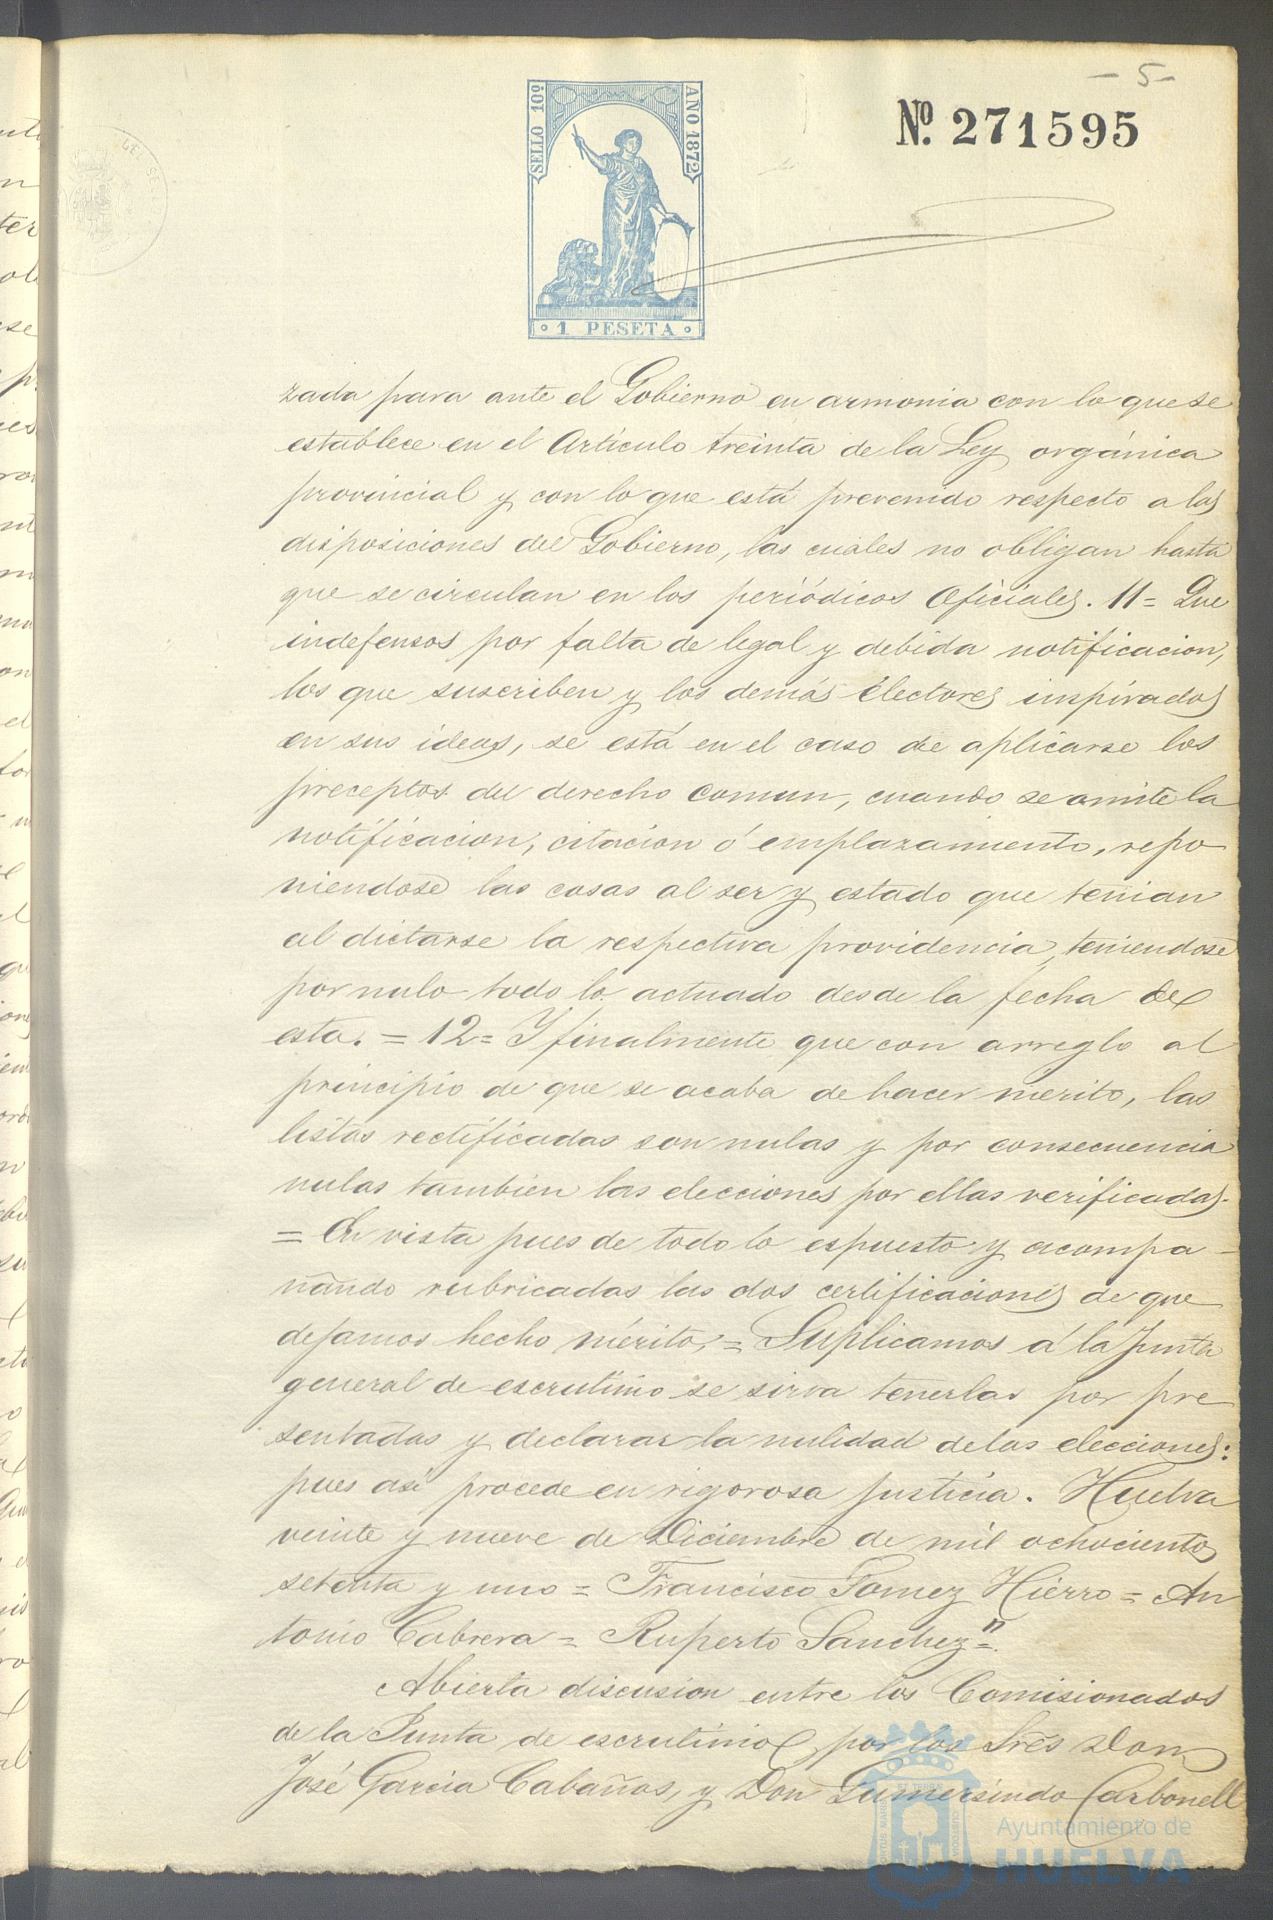 - 5 -
SELLO 10º
AÑO 1872
Nº. 271595
1 PESETA
zada para ante el Gobierno en armonia con lo que se
establece en el Artículo treinta de la Ley orgánica
provincial y con lo que está prevenido respecto a las
disposiciones del Gobierno, las cuales no obligan hasta
que se circulan en los periódicos Oficiales. 11 = Que
indefensos por falta de legal y debida notificacion,
los que suscriben y los demás électores inspirados
en sus ideas, se está en el caso de aplicarse los
preceptos del derecho comun, cuando se omite la
notificacion, citacion ó emplazamiento, repo
niendose las cosas al ser y estado que tenian
al dictarse la respectiva providencia, teniendose
por nulo todo lo actuado desde la fecha de
esta. = 12 = Y finalmente que con arreglo al
principio de que se acaba de hacer merito, las
listas rectificadas son nulas y por consecuencia
nulas tambien las elecciones por ellas verificadas.
= En vista pues de todo lo espuesto y acompa-
ñando rubricadas las dos certificaciones de que
dejamos hecho mérito, = Suplicamos á la Junta
general de escrutinio se sirva tenerlas por pre
sentadas y declarar la nulidad de las elecciones:
pues asi procede en rigorosa justicia. Huelva
veinte y nueve de Diciembre de mil ochocientos
setenta y uno = Francisco Gomez Hierro = An
tonio Cabrera = Ruperto Sanchez = "
Abierta discusion entre los Comisionados
de la Junta de escrutinio por los Sres Don
José Garcia Cabañas, y Don Gumersindo Carbonell
Ayuntamiento de
HUELVA